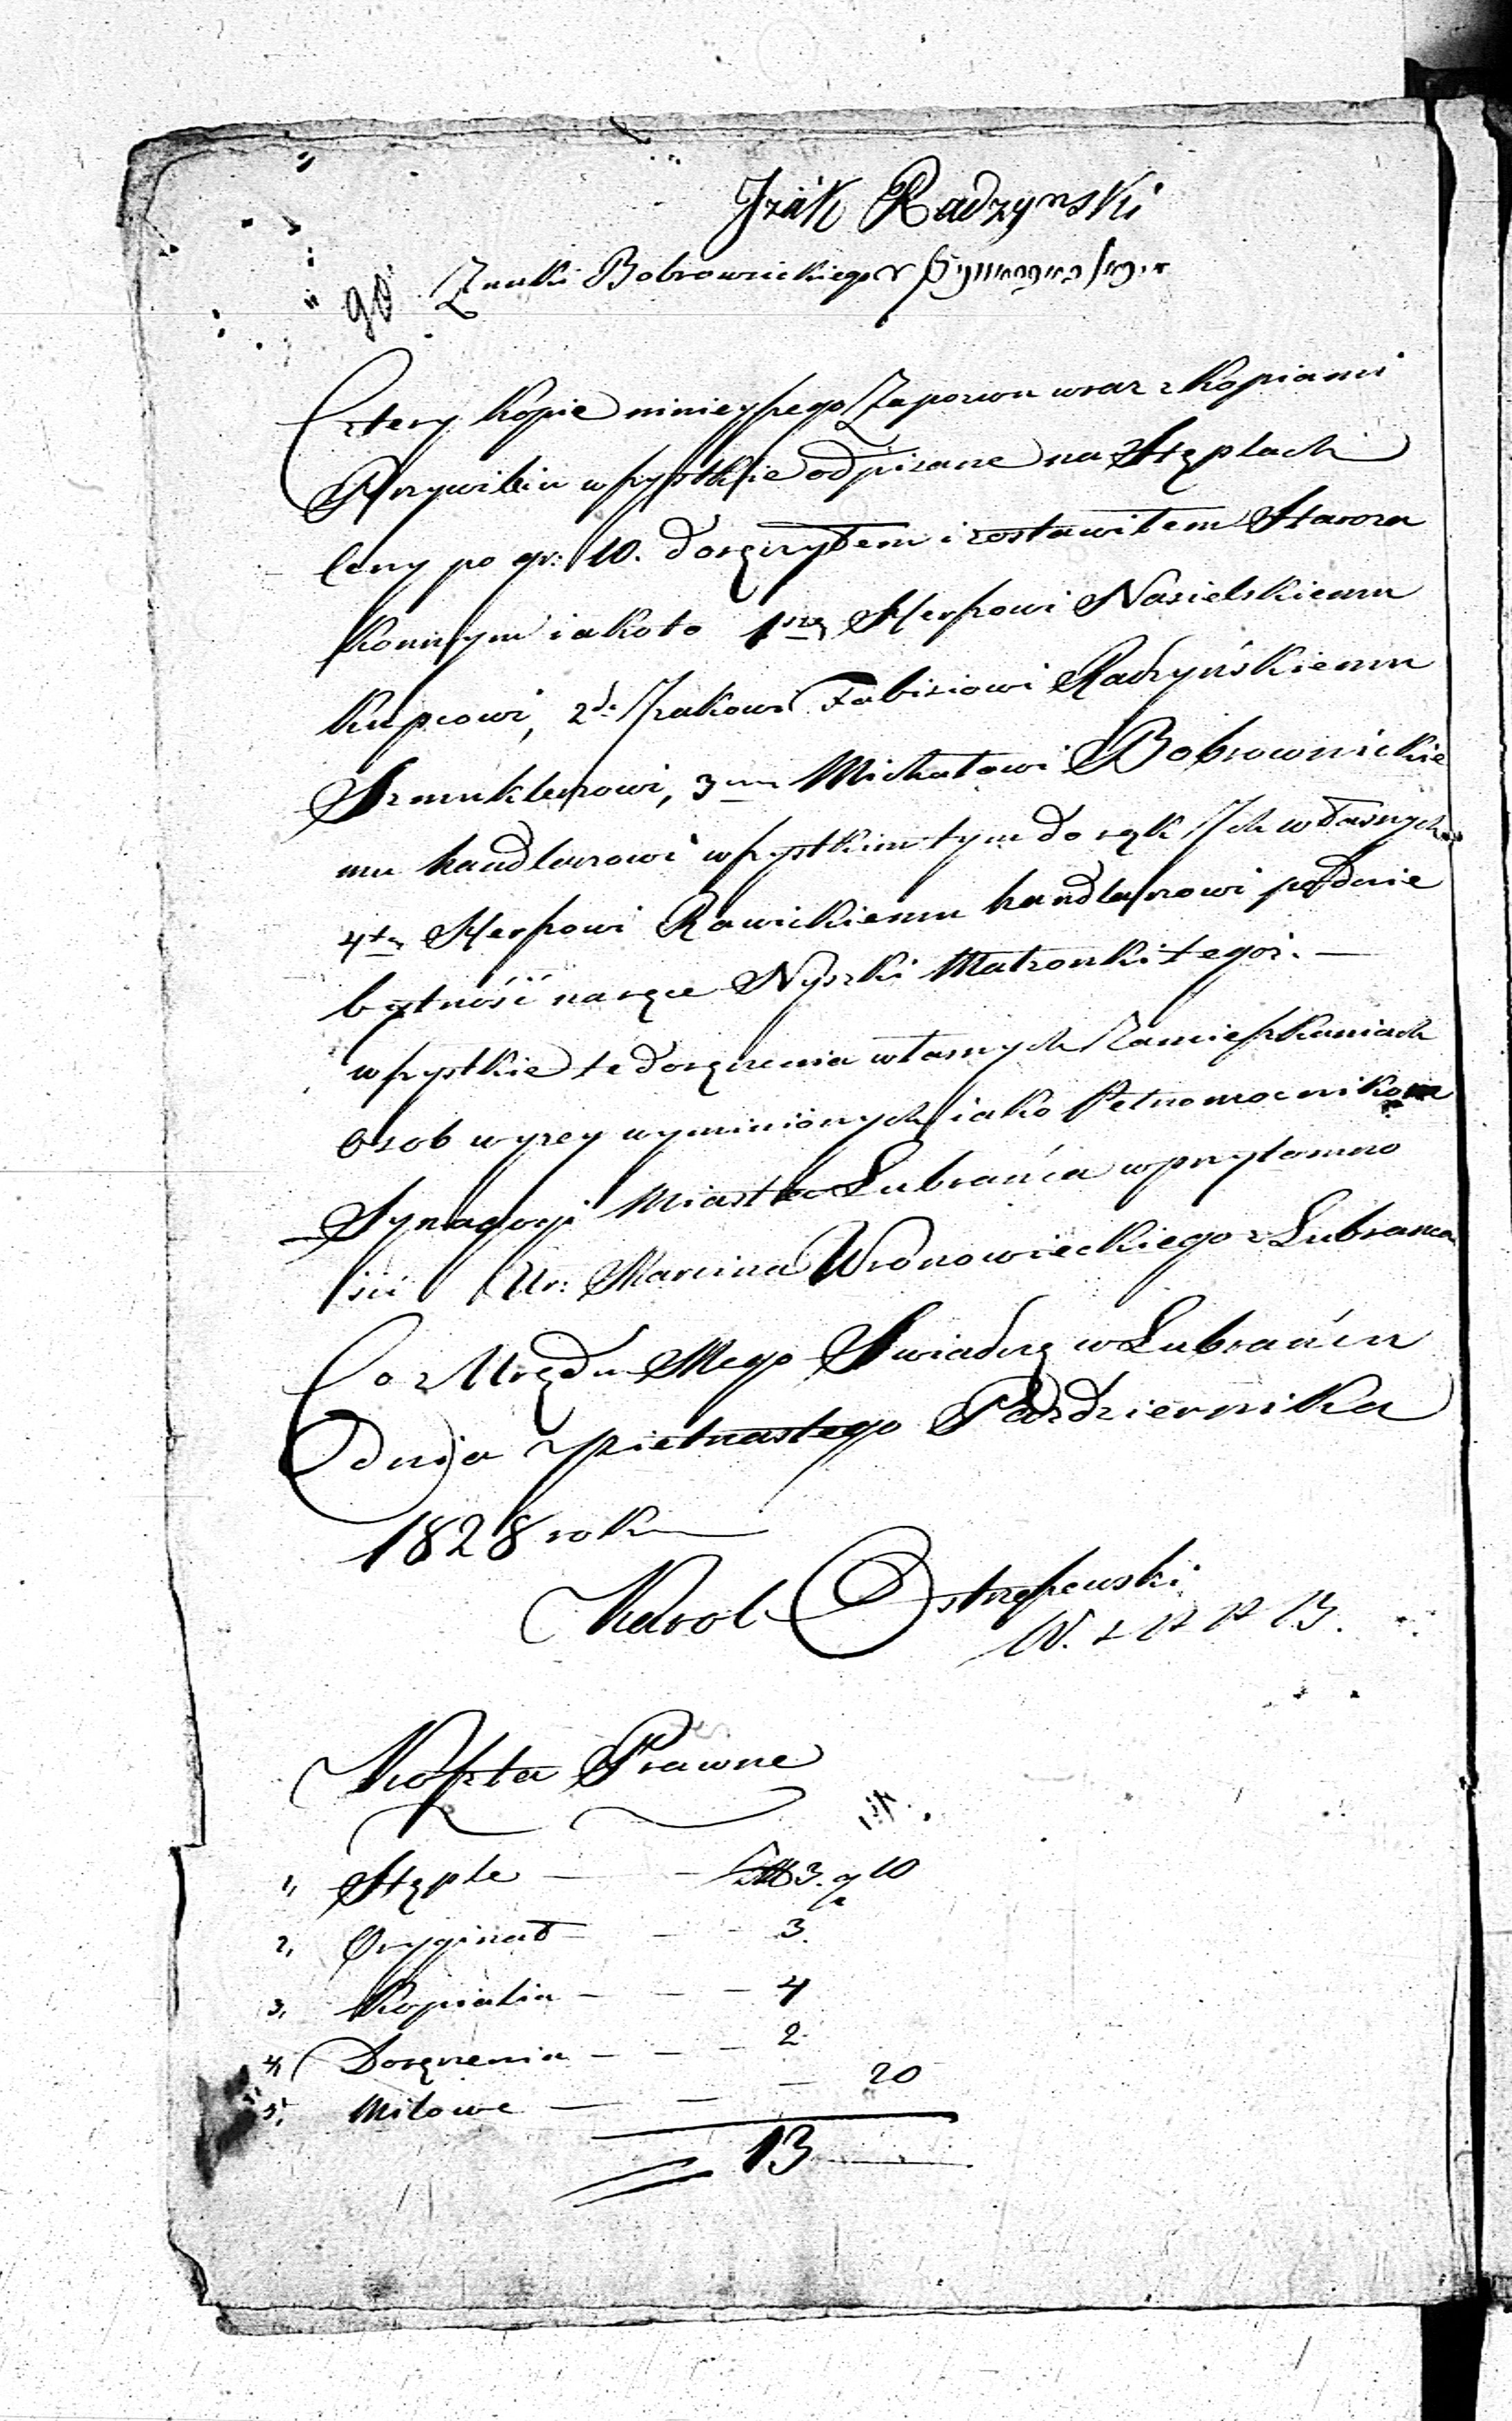 Jzak Radzynski
90 Znaki Bobrownickiego
Cztery kopie ninieyszego Zapozwu wraz z kopiami
Przywileiu wszystkie odpisane na Stęplach
Ceny po gr: 10. doręczyłem i zostawiłem Staroza
konnym iakoto 1mo Herszowi Nasielskiemu
kupcowi, 2do Jzakowi Fabisiowi Radzyńskiemu
Szmuklerzowi, 3tio Michałowi Bobrownickie
mu handlarzowi wszystkim tym do rąk Jch własnych
4to Herszowi Rawickiemu handlarzowi pod nie
bytność na ręce Nyszki Małżonki tegoż. —
wszystkie te doręczenia własnych Zamieszkaniach
Osob wyzey wyminionych iako Pełnomocnikow
Synagogi Miasta Lubrańca w przytomno
ści Ur: Marcina Wronowieckiego z Lubrańca
Co z Urzędu Mego Swiadczę w Lubrańcu
dnia piętnastego Października
1828 roku
Karol Ostrzeszewski
Koszta Prawne
1, Stęple — — 3. gr 10
2, Oryginał — — - 3.
3, Kopialia — — — 4
4, Doręczenia — — — 2.
5, Milowe — — — 20
13 —